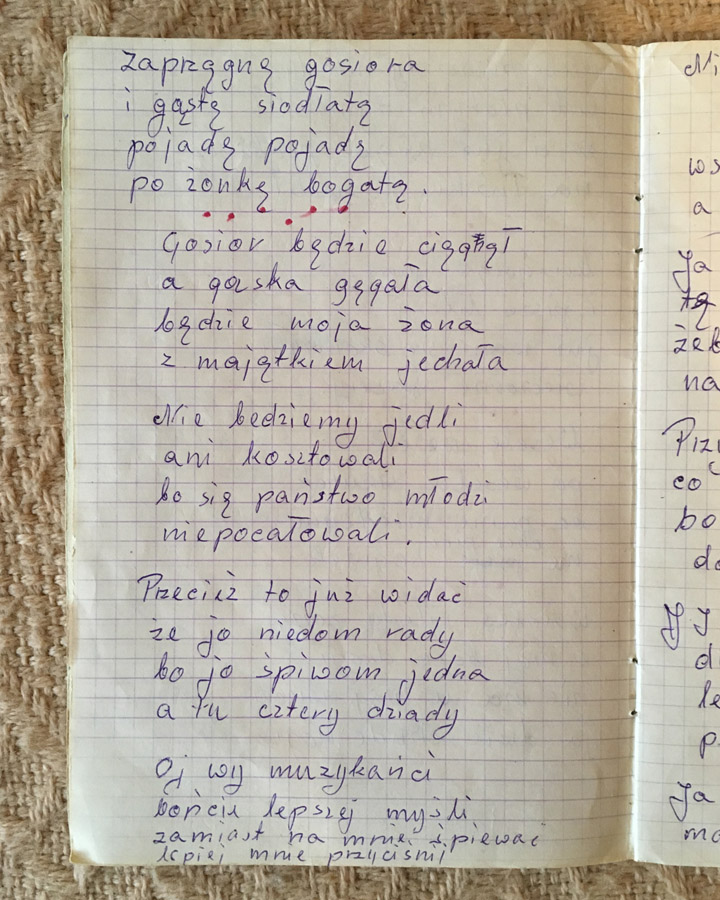 Zaprzągnę gosiora
i gąstę siodłatą
pojadę pojadę
po żonkę bogatą.
Gosior będzie ciągągł
a gąska gęgała
będzie moja żona
z majątkiem jechała
Nie bedziemy jedli
ani kosztowali
bo się państwo młodzi
niepocałowali.
Przecież to już widać
że jo niedom rady
bo jo śpiwom jedna
a tu cztery dziady
Oj wy muzykańci
bońcie lepszej myśli
zamiast na mnie śpiewać
lepiej mnie przyciśnij
Ni
ws
a
Ja
tą
żeb
na
Przy
co
bo
do
Ja
mo